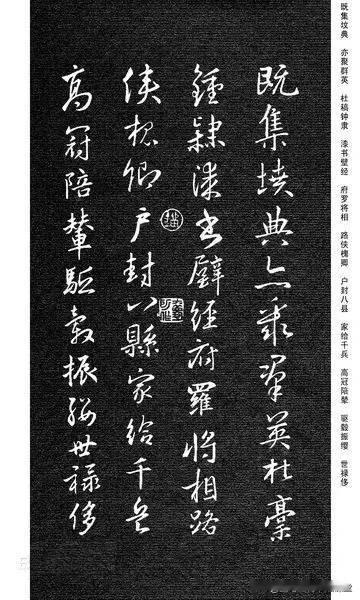 既集坟典 亦聚群英 杜稿钟隶 漆书壁经 府罗将相 路侠槐卿 户封八县 家给千兵 高冠陪辇 驱毂振缨 世禄侈
既集墳典亦聚羣英杜稾
鍾隸漆書壁經府羅將相路
俠槐卿户封八縣家給千兵
高冠陪輦驅轂振纓世禄侈